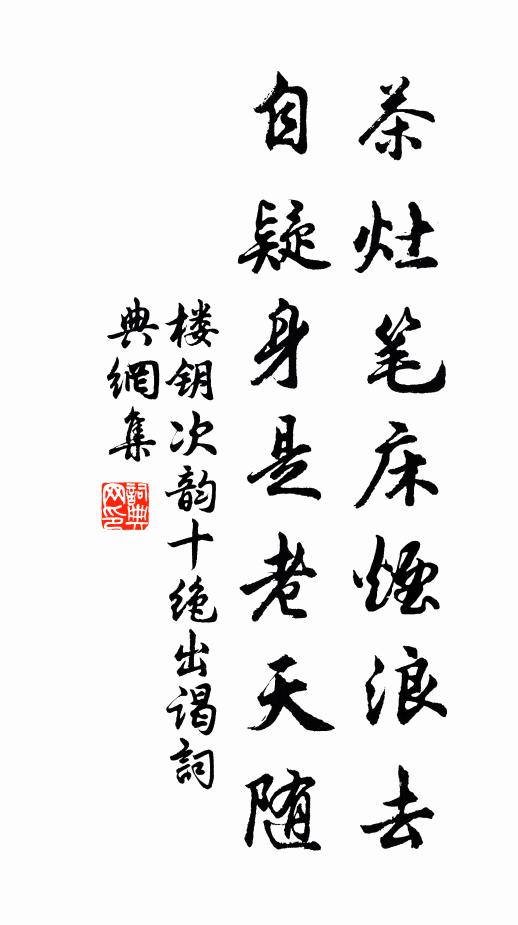 茶灶笔床烟浪去
自疑身是老天随
楼钥次韵十绝出谒词
典網集
詞典網印